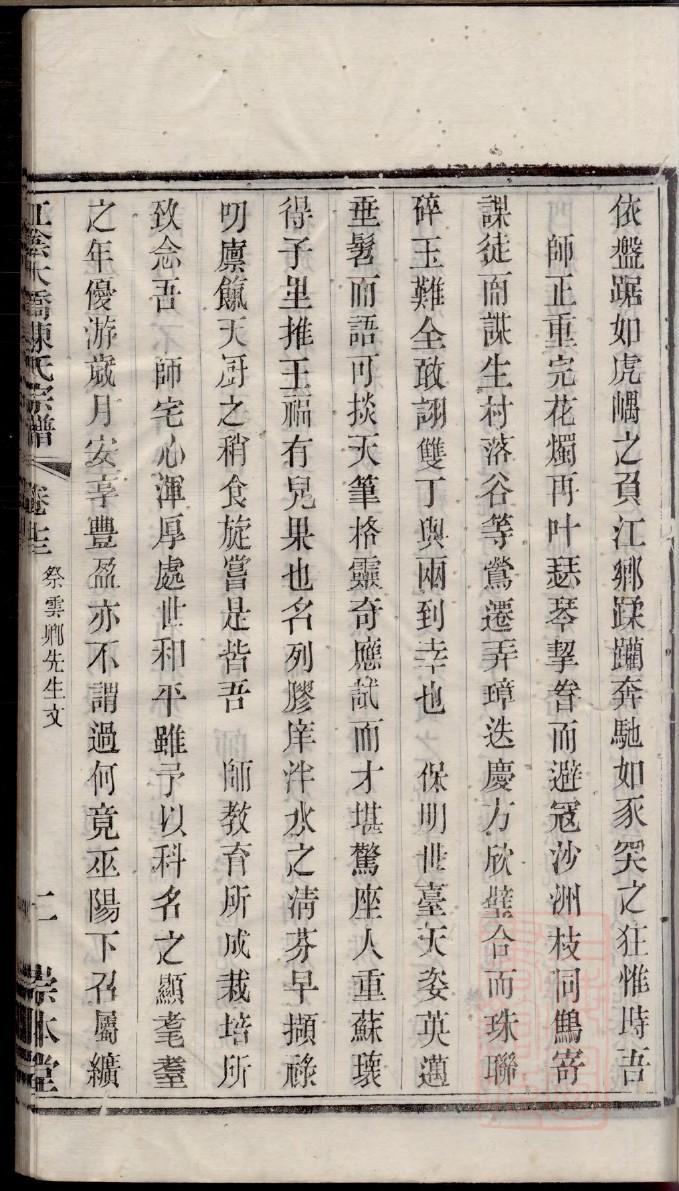 依盤踞如虎嵎之負江鄉蹂躪奔馳如豕突之狂惟時吾
師正重完花燭再叶瑟琴挈眷而避冦沙洲枝同鷦寄
謀徒而謀生村落谷等鶯遷弄璋迭慶方欣璧合而珠聯
碎玉難全敢詡雙丁與兩到幸也 保明世臺天姿英邁
垂髫而語可掞天筆格靈奇應試而才堪驚座人重蘇瓌
得子里推王福有兒果也名列膠庠泮水之清芬早擷祿
叨廪餼天厨之稍食旋嘗是皆吾 師教育所成栽培所
致念吾 師宅心渾厚處世和平雖予以科名之顯耄耋
之年優游歲月安享豐盈亦不謂過何竟巫陽下召屬纊
江陰大橋陳氏宗譜 卷 祭雲卿先生文 二 宗本堂